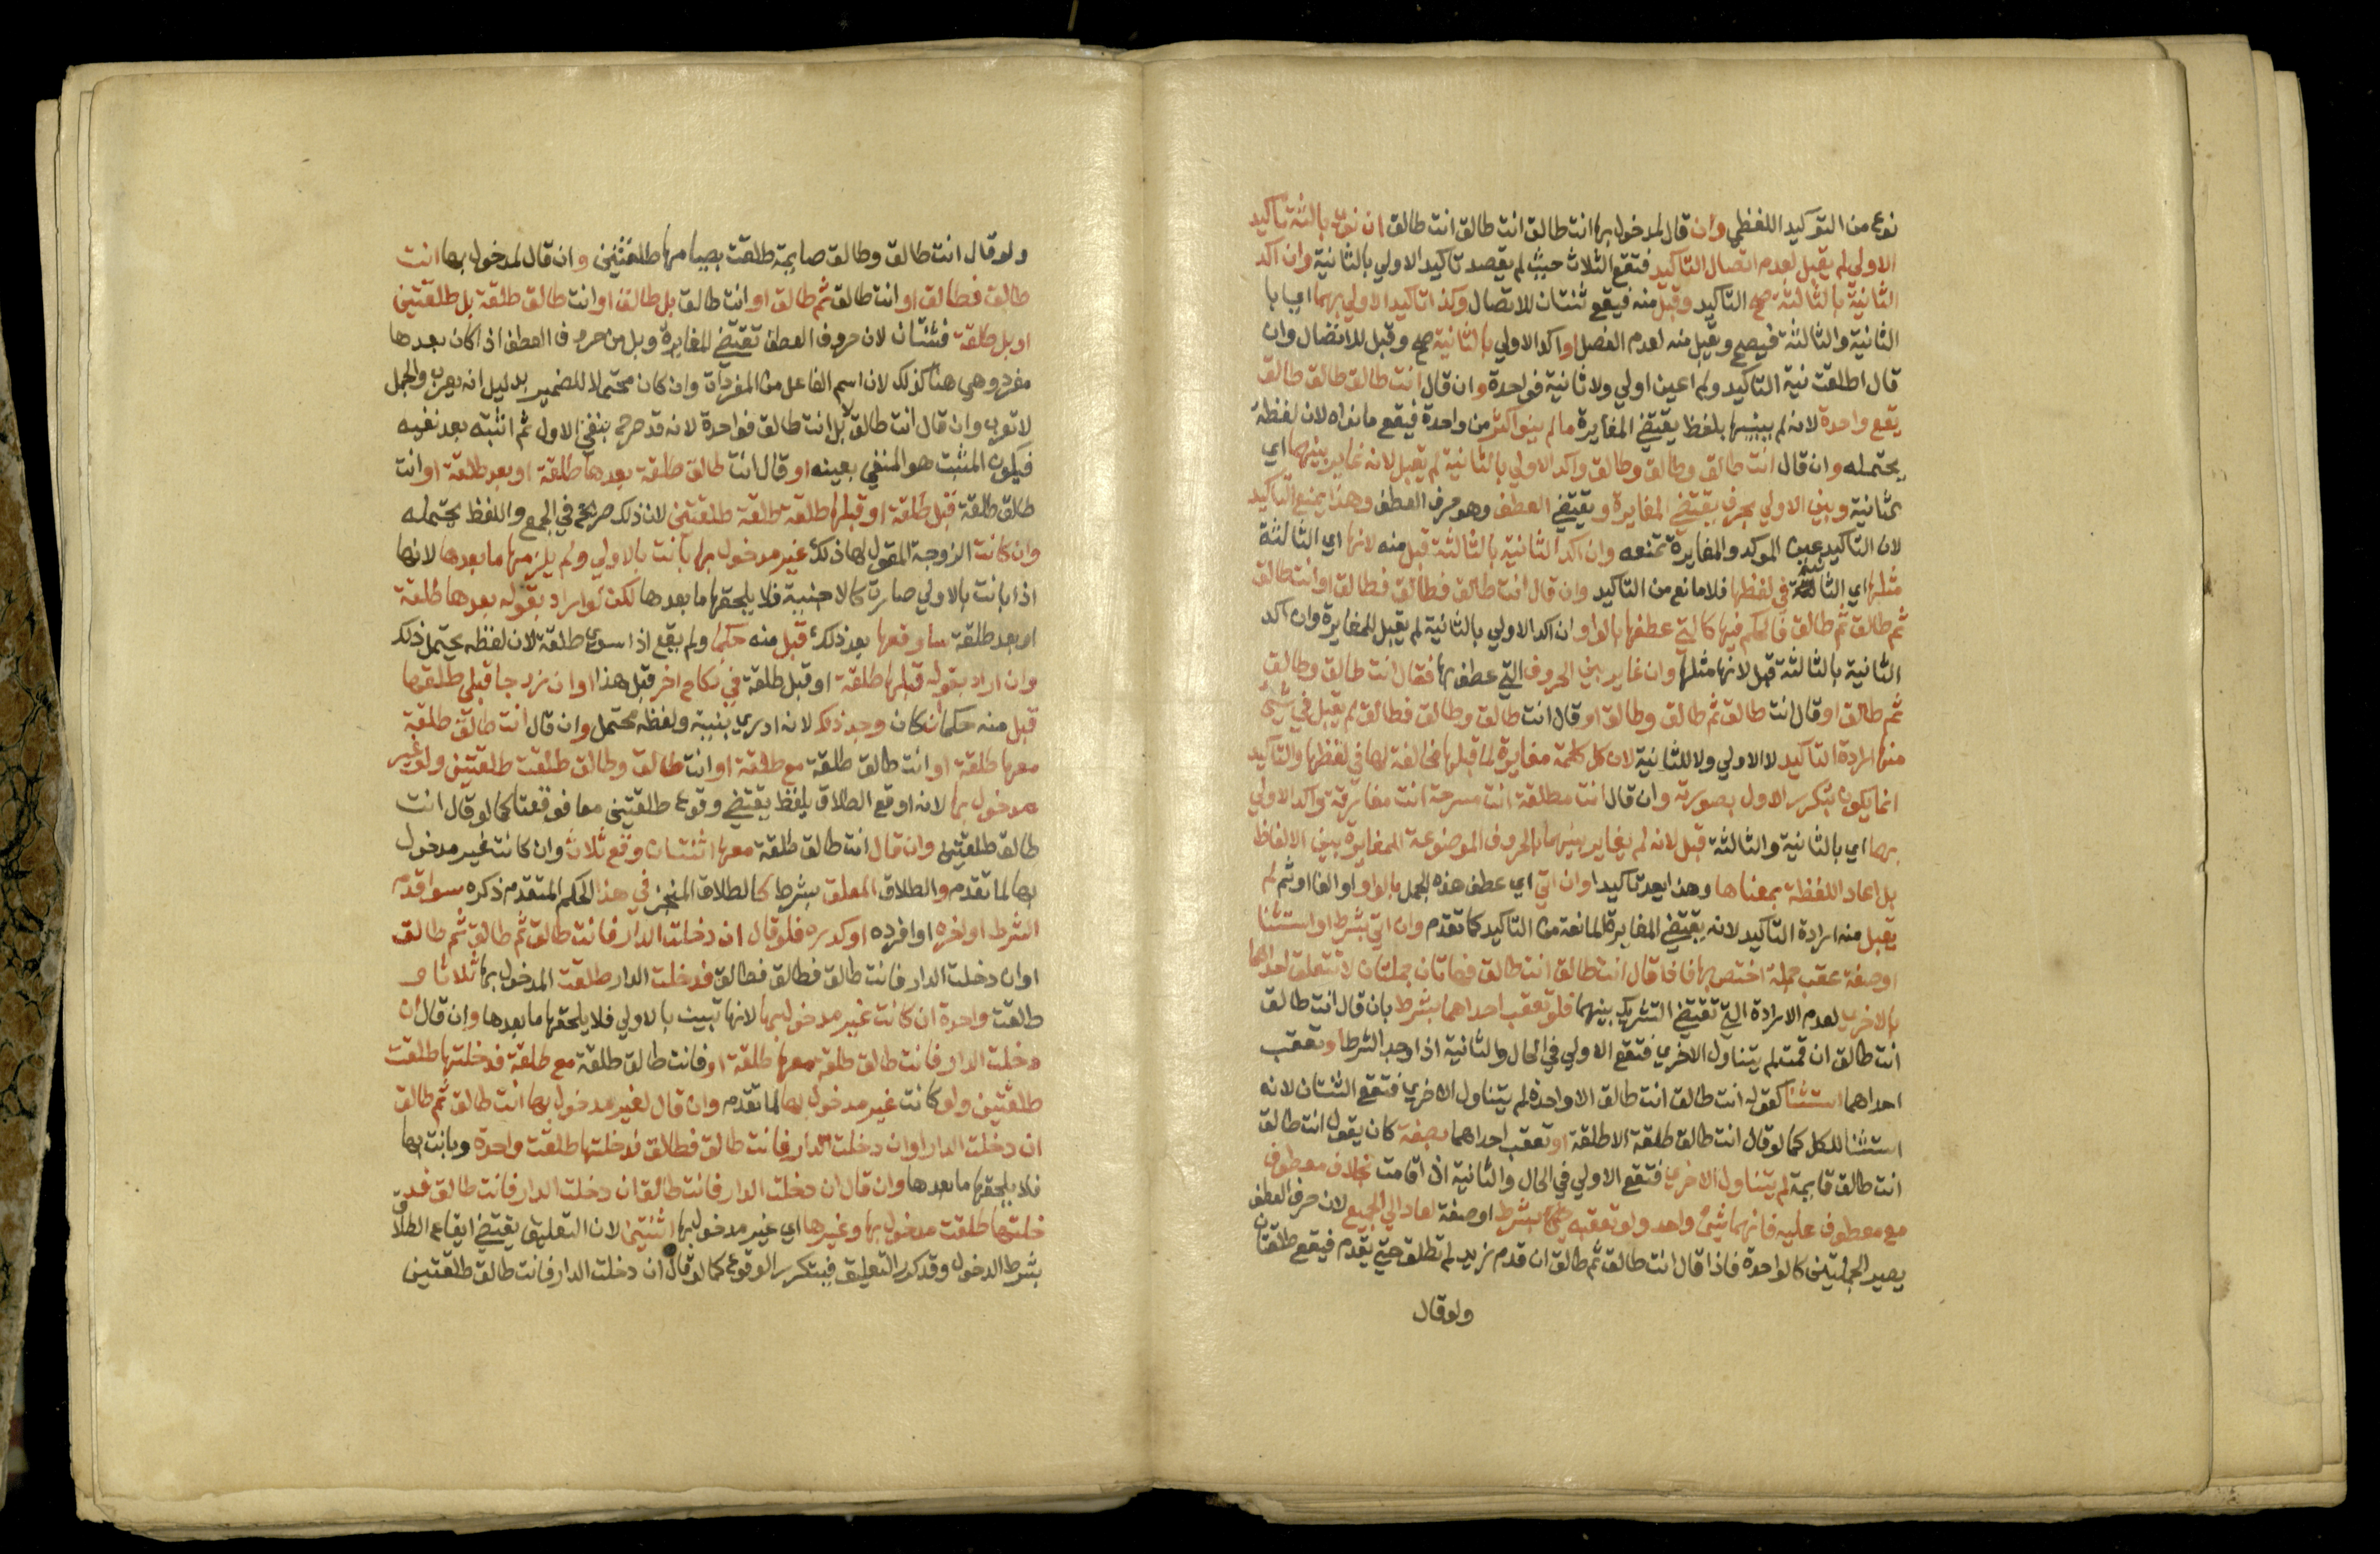 نوع من التوكيد اللفظي وان قال لمدخول بها انت طالق انت طالق انت طالق ان نوى بالثة تاكيد
الاولي لم يقبل لعدم اتصال التاكيد فتقع الثلاث حيث لم يقصد تاكيد الاولي بالثانية وان اكد
الثانية بالثالثة صح التاكيد وقبل منه فيقع ثنتان للاتصال وكذا تاكيد الاولي بهما اي با
الثانية والثالثة فيصح ويقبل منه لعدم الفصل او اكد الاولي بالثانية صح وقبل للاتصال وان
قال اطلقت نية التاكيد ولم اعين اولي ولا ثانية فواحدة وان قال انت طالق طالق طالق
يقع واحدة لانه لم يبينها بلفظ يقتضي المغايرة ما لم ينو اكثر من واحدة فيقع ما نواه لان لفظه
يحتمله وان قال انت طالق وطالق وطالق واكد الاولي بالثانية لم يقبل لانه غاير بينهما اي
الثانية وبين الاولي بحرف يقتضي المغايرة ويقتضي العطف وهو حرف العطف وهذا يمنع التاكيد
لان التاكيد عين الموكد والمغايرة تمنعه وان اكد الثانية بالثالثة قبل منه لانها اي الثالثة
مثلها اي الثانية في لفظها فلا مانع من التاكيد وان قال انت طالق فطالق فطالق او انت طالق
ثم طالق ثم طالق فالحكم فيها كالتي عطفها بالواو ان اكد الاولي بالثانية لم يقبل للمغايرة وان اكد
الثانية بالثالثة قبل لانها مثلها وان غاير بين الحروف التي عطف بها فقال انت طالق وطالق
ثم طالق او قال انت طالق ثم طالق وطالق او قال انت طالق وطالق فطالق لم يقبل في شيئ
منها ارادة التاكيد لا الاولي ولا للثانية لان كل كلمة مغايرة لما قبلها مخالفة لها في لفظها والتاكيد
انما يكون بتكرير الاول بصورته وان قال انت مطلقة انت مسرحة انت مفارقة واكد الاولي
بهما اي بالثانية والثالثة قبل لانه لم يغاير بينهما بالحروف الموضوعة للمغايرة بين الالفاظ
بل اعاد اللفظة بمعناها وهذا يعد تاكيدا وان اتي اي عطف هذه الجمل بالواو او الفا او ثم لم
يقبل منه ارادة التاكيد لانه يقتضي المغايرة المانعة من التاكيد كما تقدم وان اتي بشرط او استثنا
او صفة عقب جملة اختص بها فاذا قال انت طالق انت طالق فهاتان جملتان لا تتعلق احداهما
بالاخري لعدم الارادة التي تقتضي التشريك بينهما فلو تعقب احداهما بشرط بان قال انت طالق
انت طالق ان قمت لم يتناول الاخري فتقع الاولي في الحال والثانية اذا وجد الشرط او تعقب
احداهما استثنا كقوله انت طالق انت طالق الا واحدة لم يتناول الاخري فتقع الثنتان لانه
استثنا للكل كما لو قال انت طالق طلقة الا طلقة او تعقب احداهما بصفة كان يقول انت طالق
انت طالق قايمة لم يتناول الاخري فتقع الاولي في الحال والثانية اذا قامت بخلاف معطوف
مع معطوف عليه فانهما شئ واحد ولو تعقبه بشرط او صفة لعاد الي الجميع لان حرف العطف
يصير الجملتين كالواحدة فاذا قال انت طالق ثم طالق ان قدم زيد لم تطلق حتي يقدم فيقع طلقتان
ولو قال
ولو قال انت طالق وطالق صايمة طلقت بصيامها طلقتين وان قال لمدخول بها انت
طالق فطالق او انت طالق ثم طالق او انت طالق بل طالق او انت طالق طلقة بل طلقتين
او بل طلقة فثنتان لان حروف العطف تقتضي المغايرة وبل من حروف العطف اذا كان بعدها
مفرد وهي هنا كذلك لان اسم الفاعل من المفردات وان كان محتملا للضمير بدليل انه يعرب والجمل
لا تعرب وان قال انت طالق لا بل انت طالق فواحدة لانه قد صرح بنفي الاول ثم اثبته بعد نفيه
فيكون المثبت هو المنفي بعينه او قال انت طالق طلقة بعدها طلقة او بعد طلقة او انت
طالق طلقة قبل طلقة او قبلها طلقة طلقت طلقتين لان ذلك صريح في الجمع واللفظ يحتمله
وان كانت الزوجة المقول لها ذلك غير مدخول بها بانت بالاولي ولم يلزمها ما بعدها لانها
اذا بانت بالاولي صارت كالاجنبية فلا يلحقها ما بعدها لكن لو اراد بقوله بعدها طلقة
او بعد طلقة ساوقعها بعد ذلك قبل منه حكما ولم يقع اذا سوى طلقة لان لفظه يحتمل ذلك
وان اراد بقوله قبلها طلقة او قبل طلقة في نكاح اخر قبل هذا او ان زوجا قبلي طلقها
قبل منه حكما ان كان وجد ذلك لانه ادري بنيته ولفظه محتمل وان قال انت طالق طلقة
معها طلقة او انت طالق طلقة مع طلقة او انت طالق وطالق طلقت طلقتين ولو غير
مدخول بها لانه اوقع الطلاق بلفظ يقتضي وقوع طلقتين معا فوقعتا كما لو قال انت
طالق طلقتين وان قال انت طالق طلقة معها اثنتان وقع ثلاث وان كانت غير مدخول
بها لما تقدم والطلاق المعلق بشرط كالطلاق المنجز في هذا الحكم المتقدم ذكره سوا قدم
الشرط او اخره او افرده او كرره فلو قال ان دخلت الدار فانت طالق ثم طالق ثم طالق
او ان دخلت الدار فانت طالق فطالق فطالق فدخلت الدار طلقت المدخول بها ثلاثا و
طلقت واحدة ان كانت غير مدخول بها لانها تبين بالاولي فلا يلحقها ما بعدها وان قال ان
دخلت الدار فانت طالق طلقة معها طلقة او فانت طالق طلقة مع طلقة فدخلتها طلقت
طلقتين ولو كانت غير مدخول بها لما تقدم وان قال لغير مدخول بها انت طالق ثم طالق
ان دخلت الدار او ان دخلت الدار فانت طالق فطالق فدخلتها طلقت واحدة وبانت بها
فلا يلحقها ما بعدها وان قال ان دخلت الدار فانت طالق ان دخلت الدار فانت طالق فد
خلتها طلقت مدخول بها وغيرها اي غير مدخول بها اثنتين لان التعليق يقتضي ايقاع الطلاق
بشرط الدخول وقد كرر التعليق فيتكرر الوقوع كما لو قال ان دخلت الدار فانت طالق طلقتين